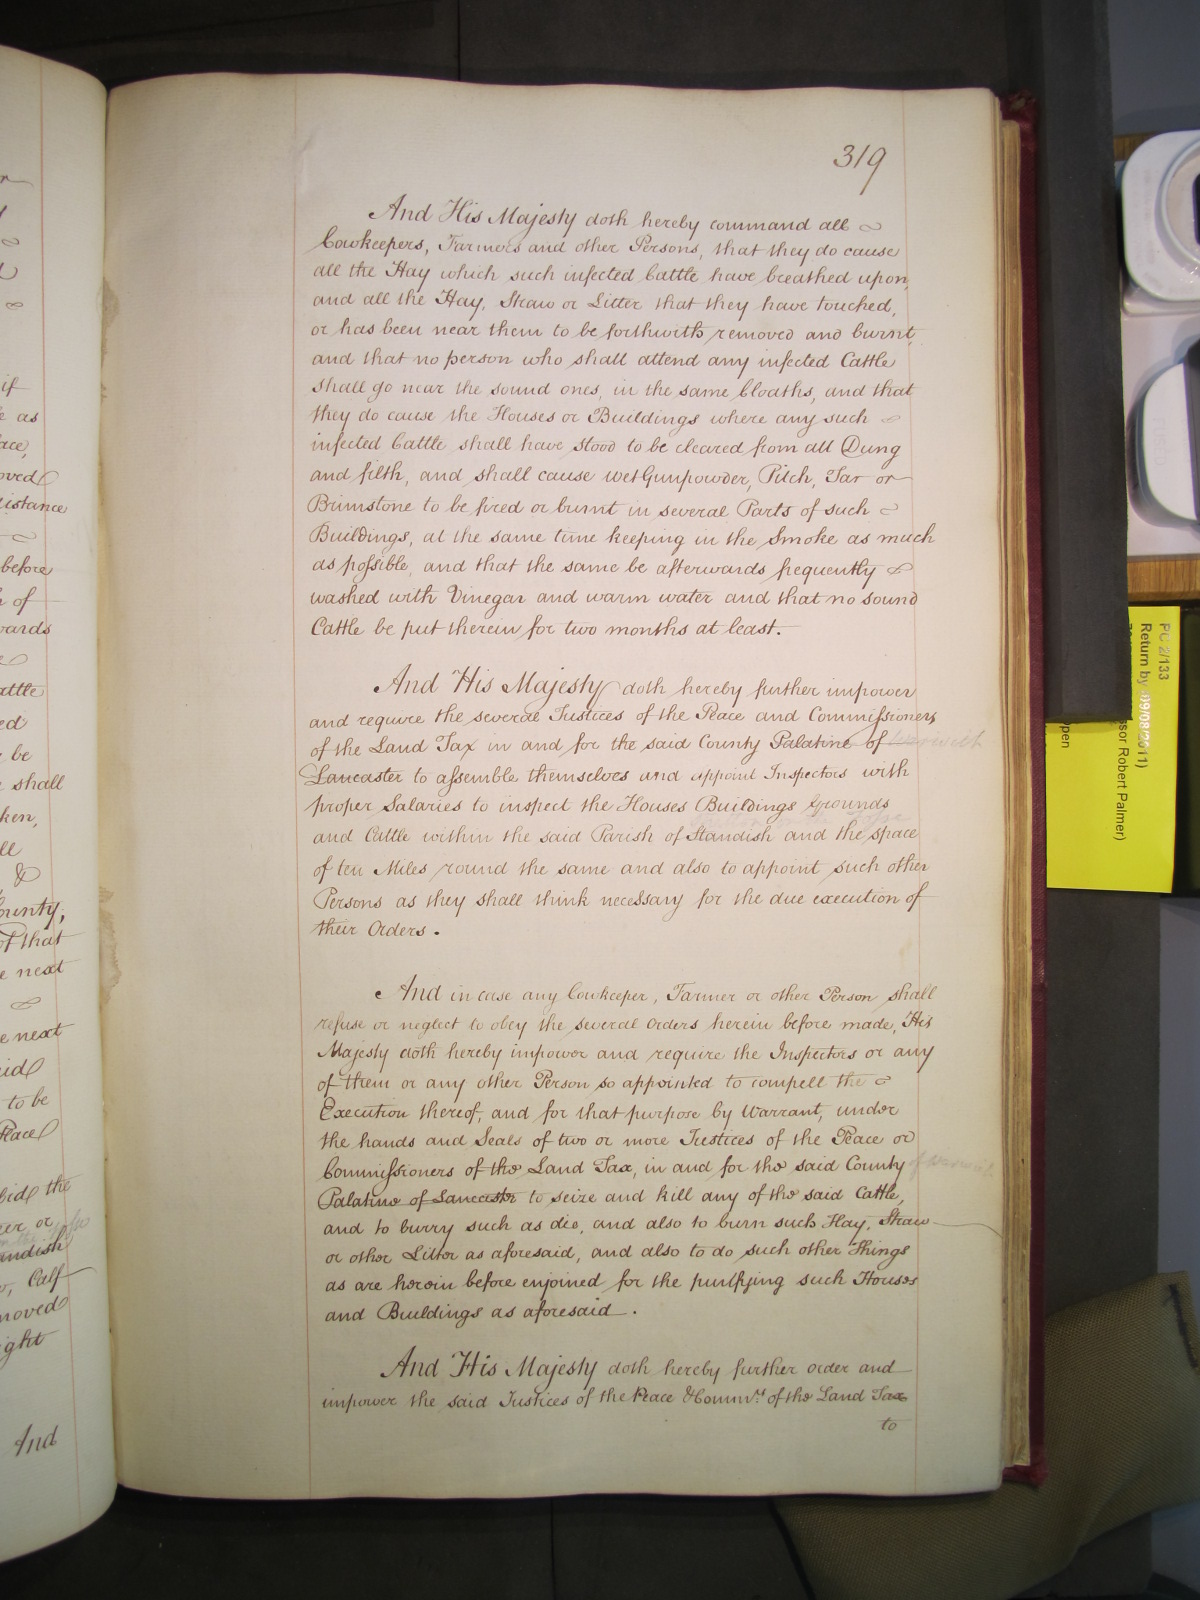 319
And His Majesty doth hereby command all
Cowkeepers, Farmers and other Persons, that they do cause
all the Hay which such infected Cattle have breathed upon,
and all the Hay, Straw or Litter that they have touched,
or has been near them to be forthwith removed and burnt,
and that no person who shall attend any infected Cattle
shall go near the sound ones, in the same Cloaths, and that
they do cause the Houses or Buildings where any such
infected Cattle shall have stood to be cleared from all Dung
and filth, and shall cause wet Gunpowder, Pitch, Tar or
Brimstone to be fired or burnt in several Parts of such
Buildings, at the same time keeping in the Smoke as much
as possible, and that the same be afterwards frequently
washed with Vinegar and warm water and that no sound
Cattle be put therein for two months at least.
And His Majesty doth hereby further impower
and require the several Justices of the Peace and Commissioners
of the Land Tax in and for the said County Palatine of
Lancaster to assemble themselves and appoint Inspectors with
proper Salaries to inspect the Houses Buildings Grounds
and Cattle within the said Parish of Standish and the space
of ten Miles round the same and also to appoint such other
Persons as they shall think necessary for the due execution of
their Orders.
And in case any Cowkeeper, Farmer or other Person shall
refuse or neglect to obey the several Orders herein before made, His
Majesty doth hereby impower and require the Inspectors or any
of them or any other Person so appointed to compell the
Execution thereof, and for that purpose by Warrant, under
the hands and Seals of two or more Justices of the Peace or
Commissioners of the Land Tax, in and for the said County of Warwick
Palatine of Lancaster to seize and kill any of the said Cattle,
and to burry such as die, and also to burn such Hay, Straw
or other Litter as aforesaid, and also to do such other Things
as are herein before enjoined for the purifying such Houses
and Buildings as aforesaid.
And His Majesty doth hereby further order and
impower the said Justices of the Peace & Commrs. of the Land Tax
to
if
as
before
of
wards
attle
be
shall
ken,
&
County;
of that
e next
e next
to be
Place
the
andish
Calf
moved
ight
And
PC 2/133
Return by (09/08/2011)
ssor Robert Palmer)
open